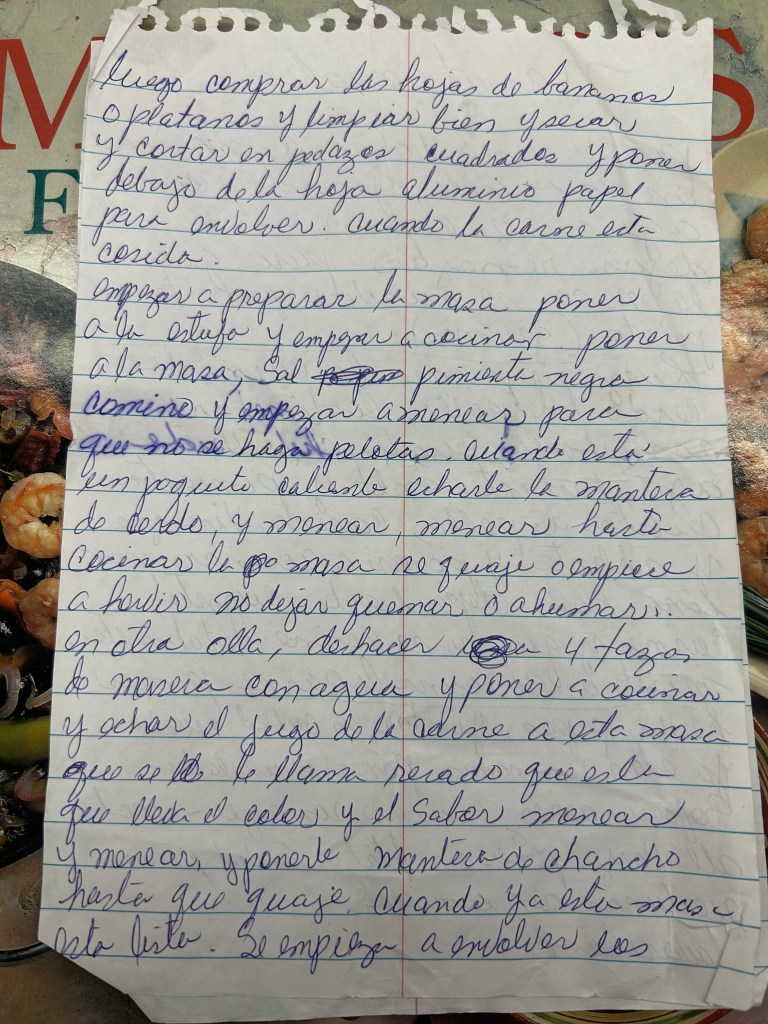 M S
F
luego comprar las hojas de bananos
o platanos y limpiar bien y secar
y cortar en pedazos cuadrados y poner
debajo de la hoja aluminio papel
para envolver. cuando la carne esta
cosida.
empezar a preparar la masa poner
a la estufa y empezar a cocinar poner
a la masa, Sal pimienta negra
comino y empezar a menear para
que no se haga pelotas. cuando está
un poquito caliente echarle la manteca
de cerdo, y menear, menear hasta
cocinar la masa se guaje o empiece
a hervir no dejar quemar o ahumar...
en otra olla, deshacer 4 tazas
de maseca con agua y poner a cocinar
y echar el jugo de la carne a esta masa
que se le llama recado que es la
que lleva el color y el Sabor menear
y menear, y ponerle manteca de chancho
hasta que guaje. Cuando ya esta masa
esta lista. Se empieza a envolver los